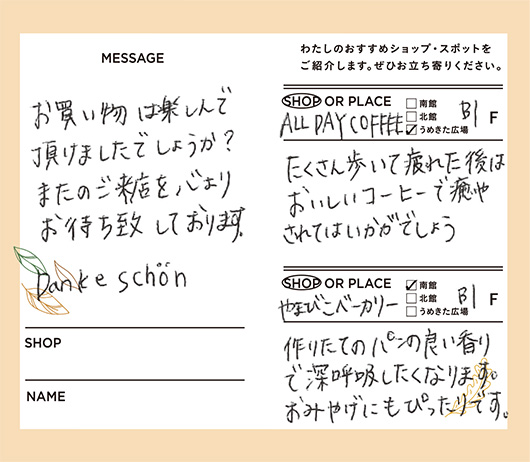 MESSAGE
お買い物は楽しんで
頂けましたでしょうか？
またのご来店を心より
お待ち致しております。
Danke schön
SHOP
NAME
わたしのおすすめショップ・スポットを
ご紹介します。ぜひお立ち寄りください。
SHOP OR PLACE
南館
北館
うめきた広場
B1 F
ALL DAY COFFEE
たくさん歩いて疲れた後は
おいしいコーヒーで癒や
されてはいかがでしょう
SHOP OR PLACE
南館
北館
うめきた広場
B1 F
やまびこベーカリー
作りたてのパンの良い香り
で深呼吸したくなります。
おみやげにもぴったりです。